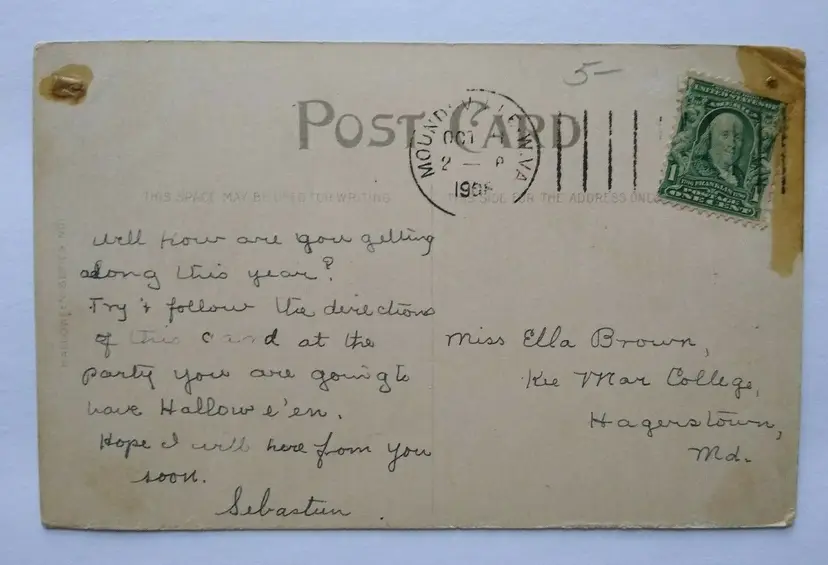 5-
POST CARD
MOUNDSVILLE W.VA
OCT
2 - P
1908
UNITED STATES OF
AMERICA
1
POSTAGE
ONE CENT
THIS SPACE MAY BE USED FOR WRITING
THIS SIDE FOR THE ADDRESS ONLY
Well How are you getting
along this year?
Try & follow the directions
of this card at the
party you are going to
have Hallowe'en.
Hope I will here from you
soon.
Sebastian
Miss Ella Brown,
Kee Mar College,
Hagerstown,
Md.